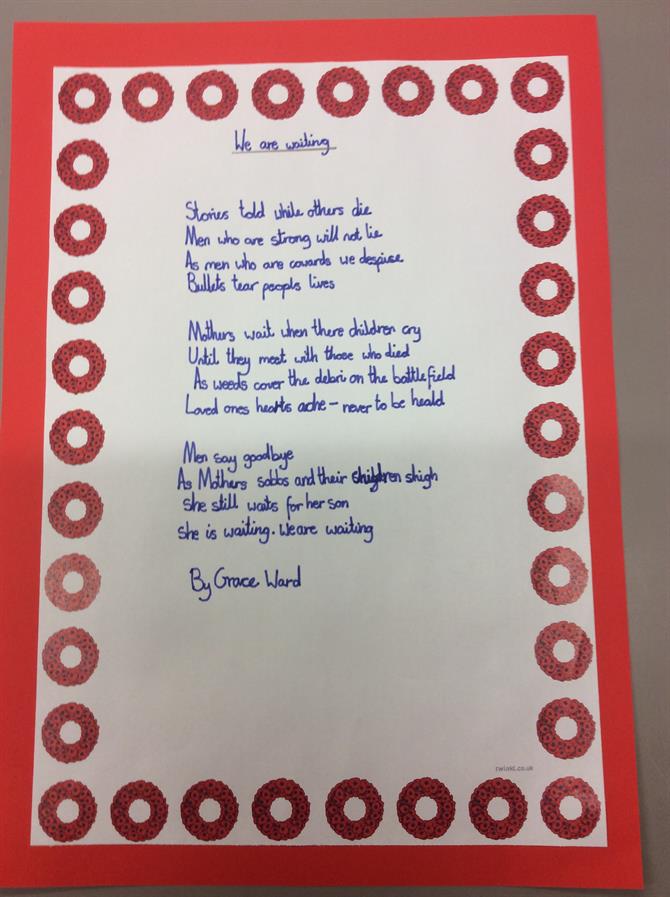 We are waiting
Stories told while others die
Men who are strong will not lie
As men who are cowards we despise
Bullets tear peopls lives
Mothers wait when there children cry
Until they meet with those who died
As weeds cover the debri on the battlefield
Loved ones hearts ache - never to be heald
Men say goodbye
As Mothers sobbs and their children shigh
She still waits for her son
She is waiting. We are waiting
By Grace Ward
twinkl.co.uk